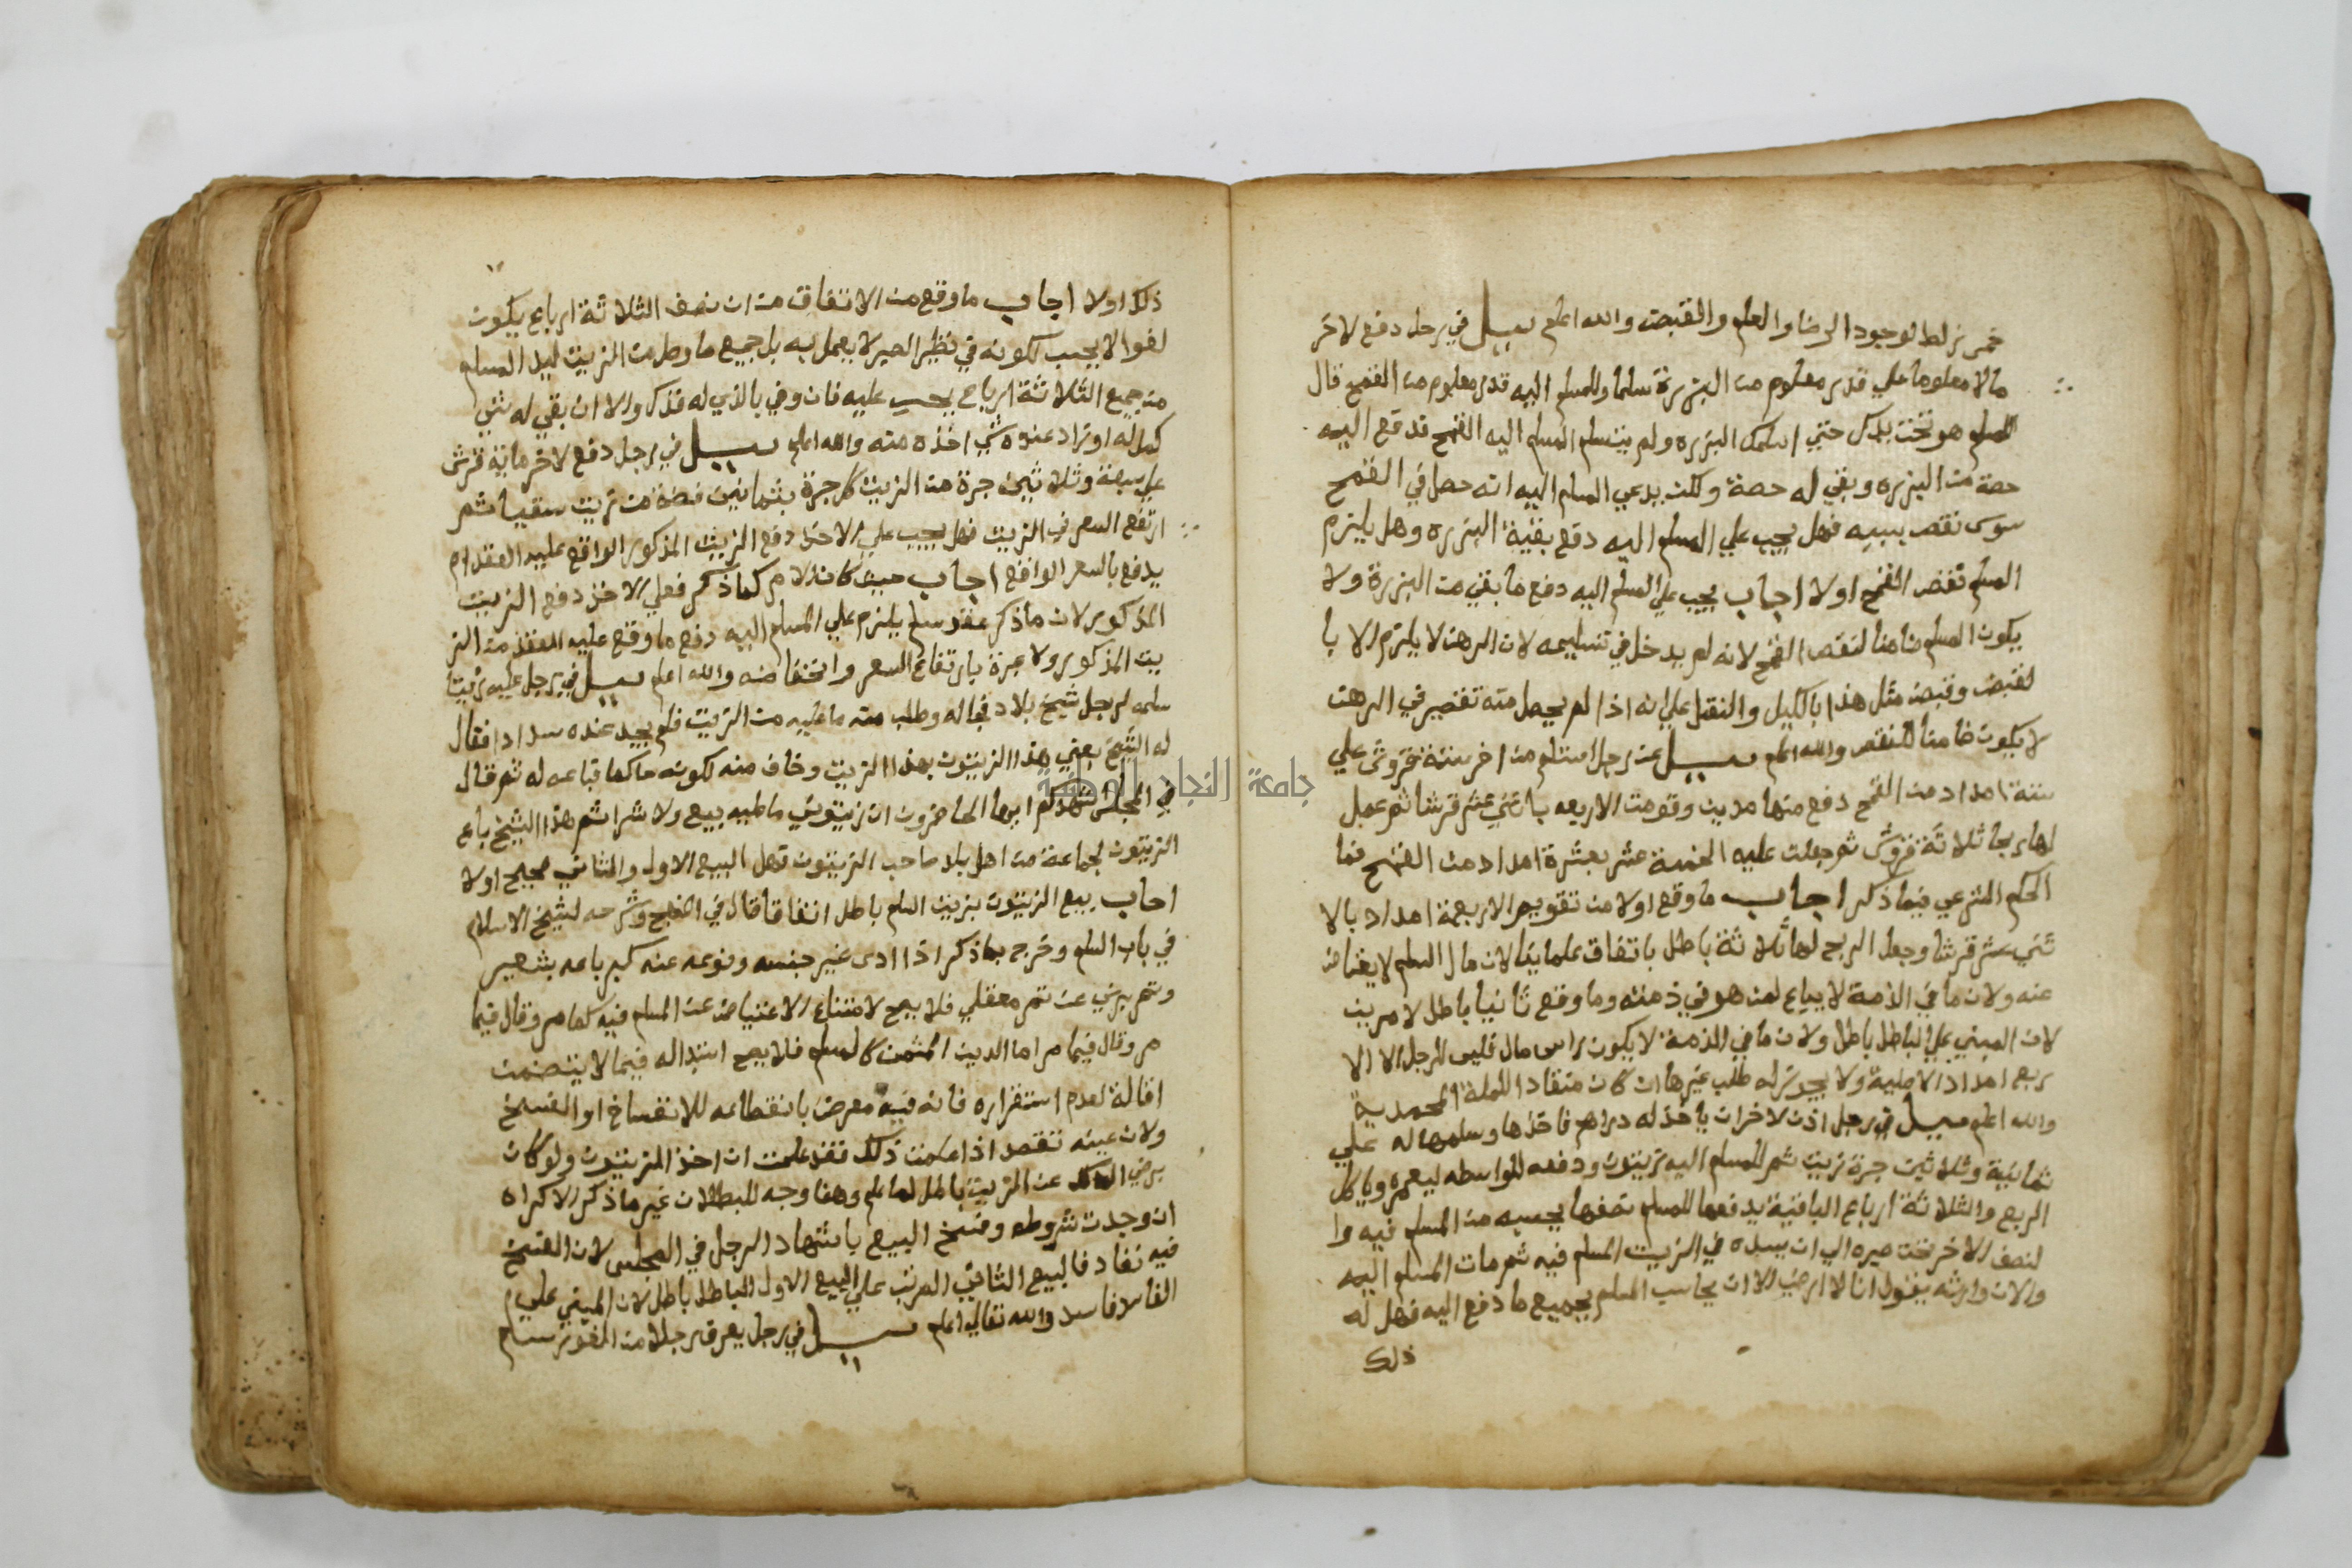 خمر زلط لوجود الرضا والعلم والقبض والله اعلم سيل في رجل دفع لاخر
مالا معلوما علي قدر معلوم من البزرة سلما وللمسلم اليه قدر معلوم من القمح قال
المسلم هو تحت يدك حتي اسلمك البزره ولم يتسلم المسلم اليه القمح قد قع اليه
حصة من البزره وبقي له حصة ولكن يدعي المسلم اليه انه حصل في القمح
سوس نقص بسببه فهل يجب علي المسلم اليه دفع بقية البزره وهل يلزم
المسلم نقص القمح اولا اجاب يجب علي المسلم اليه دفع ما بقي من البزرة ولا
يكون المسلم ضامنا لنقص القمح لانه لم يدخل في تسليمه لان الرهن لا يلزم الا با
لقبض وقبض مثل هذا بالكيل والنقل علي انه اذا لم يحصل منه تقصير في الرهن
لا يكون ضامنا للنقص والله اعلم سيل عن رجل استلم من اخر ستة قروش علي
ستة امداد من القمح دفع منها مدين وقومت الاربعه باثني عشر قرشا ثم عمل
لها ربحا ثلاثة قروش ثم جعلت عليه الخمسة عشر بعشرة امداد من القمح فما
الحكم الشرعي فيما ذكر اجاب ما وقع اولا من تقويم الاربعة امداد بالا
ثني عشر قرشا وجعل الربح لها ثلاثة باطل باتفاق علمائنا لان مال السلم لا يعتاض
عنه ولان ما في الذمة لا يباع لمن هو في ذمته وما وقع ثانيا باطل لامرين
لان المبني علي الباطل باطل ولان ما في الذمة لا يكون راس مال فليس للرجل الا الا
ربع امداد الاصلية ولا يجوز له طلب غيرها ان كان منقادا للملة المحمدية
والله اعلم سيل في رجل اذن لاخر ان ياخذ له دراهم فاخذها وسلمها له علي
ثمانية وثلاثين جرة زيت ثم للمسلم اليه زيتون ودفعه للواسطه ليعمره وياكل
الربع والثلاثة ارباع الباقية يدفعها للمسلم نصفها يحسبه من المسلم فيه وا
لنصف الاخر تحت صيره الي ان يسده في الزيت المسلم فيه ثم مات المسلم اليه
والان وارثه يقول انا لا ارضي الا ان يحاسب المسلم بجميع ما دفع اليه فهل له
ذلك
ذلك اولا اجاب ما وقع من الاتفاق من ان نصف الثلاثة ارباع يكون
لغوا لا يجب لكونه في نظير الصبر لا يعمل به بل جميع ما وصل من الزيت ليد المسلم
من جميع الثلاثة ارباع يحسب عليه فان وفي بالذي له فذك والا ان بقي له شي
كمل له او زاد عنده شي اخذه منه والله اعلم سيل في رجل دفع لاخر مائة قرش
علي سبعة وثلاثين جرة من الزيت كل جرة بثمانين فضة من زيت سقيا ثم
ارتفع السعر في الزيت فهل يجب علي الاخذ دفع الزيت المذكور الواقع عليه العقد ام
يدفع بالسعر الواقع اجاب حيث كان الامر كما ذكر فعلي الاخذ دفع الزيت
المذكور لان ما ذكر عقد سلم يلزم علي المسلم اليه دفع ما وقع عليه العقد من الز
يت المذكور ولا عبرة بارتفاع السعر وانخفاضه والله اعلم سيل في رجل عليه زيتا
سلمه لرجل شيخ بلاد فجاله وطلب منه ما عليه من الزيت فلم يجد عنده سدادا فقال
له الشيخ بعني هذا الزيتون بهذا الزيت وخاف منه لكونه حاكما فباعه له ثم قال
في المجلس اشهدكم ايها الحاضرون ان زيتوني ما عليه بيع ولا شرا ثم هذا الشيخ باع
الزيتون لجماعة من اهل بلد صاحب الزيتون فهل البيع الاول والثاني صحيح اولا
اجاب بيع الزيتون بزيت السلم باطل اتفاقا قال في المنهج وشرحه لشيخ الاسلام
في باب السلم وخرج بما ذكر اذا ادى غير جنسه ونوعه عنه كبر باعه بشعير
وتمر برني عن تمر معقلي فلا يصح لامتناع الاعتياض عن المسلم فيه كما مر وقال فيما
مر وقال فيما مر اما الدين المثمن كالمسلم فلا يصح استبداله فيما لا يتضمن
اقالة لعدم استقراره فانه فيه معرض بانقطاعه للانفساخ او الفسخ
ولان عينه تقصد اذا علمت ذلك فقد علمت ان اخذ الزيتون ولو كان
برضي عن الزيت باطل لما علم وهنا وجه للبطلان غير ما ذكر الاكراه
ان وجدت شروطه وفسخ البيع باشهاد الرجل في المجلس لان الفسخ
فيه نفاد فالبيع الثاني المرتب علي البيع الاول الباطل باطل لان المبني علي
الفاسد فاسد والله تعالي اعلم سيل في رجل يعرف رجلا من الغور سلم
جامعة النجاح الوطنية